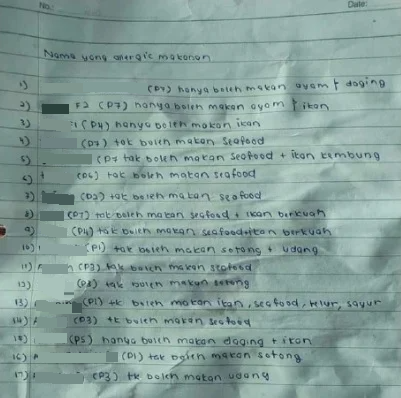 No.: Date:
Nama yang alergic makanan
1) (P7) hanya boleh makan ayam + daging
2) #2 (P7) hanya boleh makan ayam + ikan
3) (P4) hanya boleh makan ikan
4) (P7) tak boleh makan seafood
5) (P5 tak boleh makan seafood + ikan kembung
6) (P6) tak boleh makan seafood
7) (P2) tak boleh makan seafood
8) (P7) tak boleh makan seafood + ikan berkuah
9) (P4) tak boleh makan seafood + ikan berkuah
10) (P1) tak boleh makan sotong + udang
11) (P3) tak boleh makan seafood
12) (P3) tak boleh makan sotong
13) (P1) tk boleh makan ikan, seafood, telur, sayur
14) (P3) tk boleh makan seafood
15) (P5) hanya boleh makan daging + ikan
16) (P1) tak boleh makan sotong
17) (P3) tk boleh makan udang